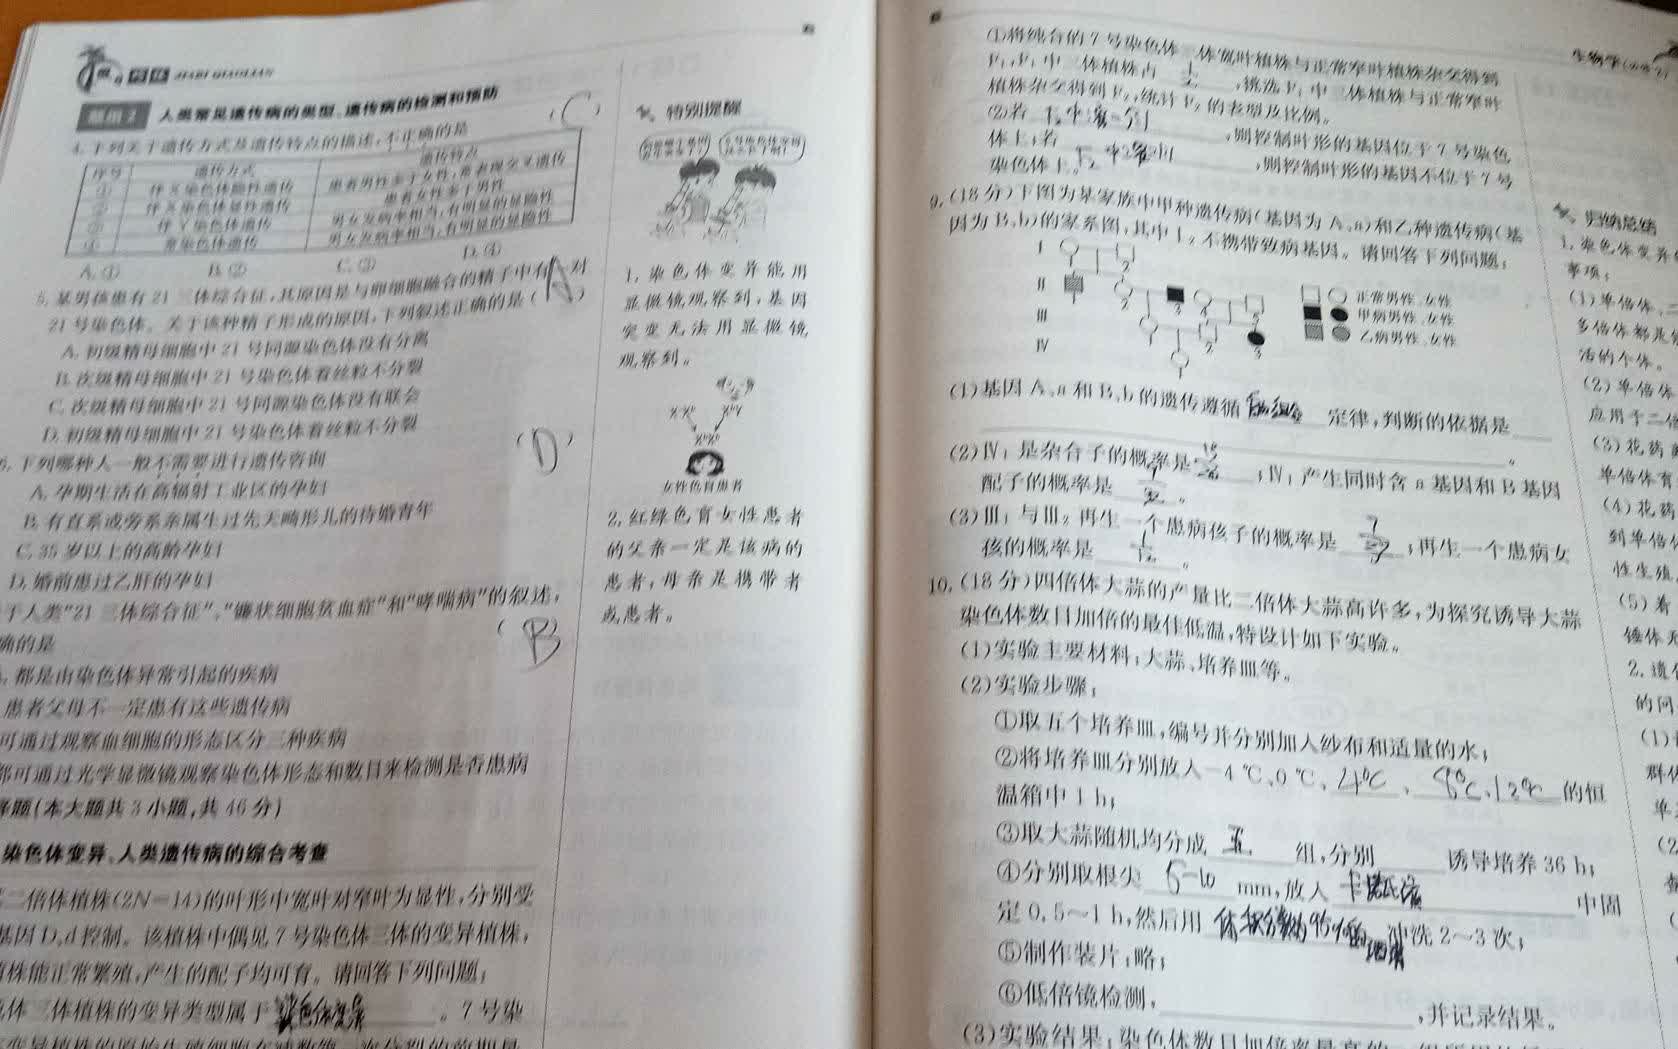 JIARI QIAOLIAN
题组2 人类常见遗传病的类型、遗传病的检测和预防
4.下列关于遗传方式及遗传特点的描述,不正确的是 (C)
序号 遗传方式 遗传特点
① 伴X染色体隐性遗传 患者男性多于女性,常表现交叉遗传
② 伴X染色体显性遗传 患者女性多于男性
③ 伴Y染色体遗传 男女发病率相当,有明显的显隐性
④ 常染色体遗传 男女发病率相当,有明显的显隐性
A.① B.② C.③ D.④
5.某男孩患有21三体综合征,其原因是与卵细胞融合的精子中有一对
21号染色体。关于该种精子形成的原因,下列叙述正确的是(A)
A.初级精母细胞中21号同源染色体没有分离
B.次级精母细胞中21号染色体着丝粒不分裂
C.次级精母细胞中21号同源染色体没有联会
D.初级精母细胞中21号染色体着丝粒不分裂
6.下列哪种人一般不需要进行遗传咨询 (D)
A.孕期生活在高辐射工业区的孕妇
B.有直系或旁系亲属生过先天畸形儿的待婚青年
C.35岁以上的高龄孕妇
D.婚前患过乙肝的孕妇
于人类“21三体综合征”、“镰状细胞贫血症”和“哮喘病”的叙述,
确的是 (B)
都是由染色体异常引起的疾病
患者父母不一定患有这些遗传病
可通过观察血细胞的形态区分三种疾病
都可通过光学显微镜观察染色体形态和数目来检测是否患病
题(本大题共3小题,共46分)
染色体变异、人类遗传病的综合考查
二倍体植株(2N=14)的叶形中宽叶对窄叶为显性,分别受
基因D、d控制。该植株中偶见7号染色体三体的变异植株,
植株能正常繁殖,产生的配子均可育。请回答下列问题:
体三体植株的变异类型属于 染色体变异 。7号染
特别提醒
1.染色体变异能用
显微镜观察到,基因
突变无法用显微镜
观察到。
女性色盲患者
2.红绿色盲女性患者
的父亲一定是该病的
患者,母亲是携带者
或患者。
生物学(必修2)
①将纯合的7号染色体三体宽叶植株与正常窄叶植株杂交得到
F₁,F₁中三体植株占 1/2 ,挑选F₁中三体植株与正常窄叶
植株杂交得到F₂,统计F₂的表型及比例。
②若 ,则控制叶形的基因位于7号染色
体上;若 ,则控制叶形的基因不位于7号
染色体上。
9.(18分)下图为某家族中甲种遗传病(基因为A、a)和乙种遗传病(基
因为B、b)的家系图,其中Ⅰ₂不携带致病基因。请回答下列问题:
Ⅰ
Ⅱ
Ⅲ
Ⅳ
正常男性、女性
甲病男性、女性
乙病男性、女性
(1)基因A、a和B、b的遗传遵循 自由组合 定律,判断的依据是
。
(2)Ⅳ₁是杂合子的概率是 ;Ⅳ₁产生同时含a基因和B基因
配子的概率是 。
(3)Ⅲ₁与Ⅲ₂再生一个患病孩子的概率是 ;再生一个患病女
孩的概率是 1/12 。
10.(18分)四倍体大蒜的产量比二倍体大蒜高许多,为探究诱导大蒜
染色体数目加倍的最佳低温,特设计如下实验。
(1)实验主要材料:大蒜、培养皿等。
(2)实验步骤:
①取五个培养皿,编号并分别加入纱布和适量的水;
②将培养皿分别放入-4℃、0℃、4℃、8℃、12℃的恒
温箱中1 h;
③取大蒜随机均分成 五 组,分别 诱导培养36 h;
④分别取根尖 5-10 mm,放入 卡诺氏液 中固
定0.5~1 h,然后用 体积分数为95%的酒精 冲洗2~3次;
⑤制作装片:略;
⑥低倍镜检测, ,并记录结果。
(3)实验结果:染色体数目加倍率最高的一组
归纳总结
1.染色体变异
事项:
(1)单倍体、二
多倍体都是
活的个体。
(2)单倍体
应用于二倍
(3)花药
单倍体育
(4)花药
到单倍体
性生殖
(5)着
锤体
2.遗
的问